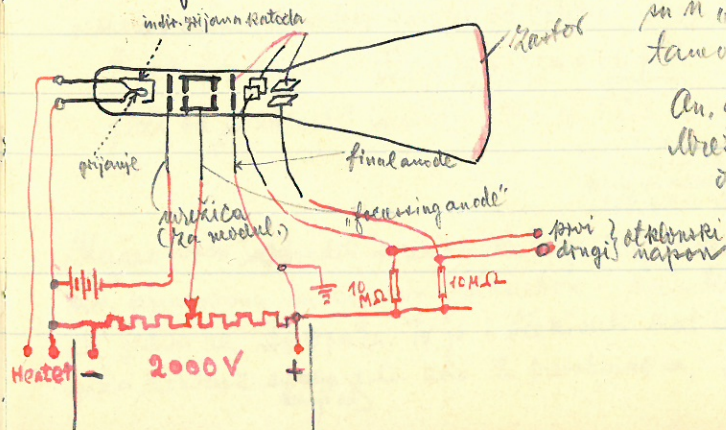 indir. grijana katoda
zastor
grijanje
final anode
mrežica
(za modul.)
"focussing anode"
prvi } otklonski
drugi } napon
10
MΩ
10MΩ
Heater
-
2000V
+